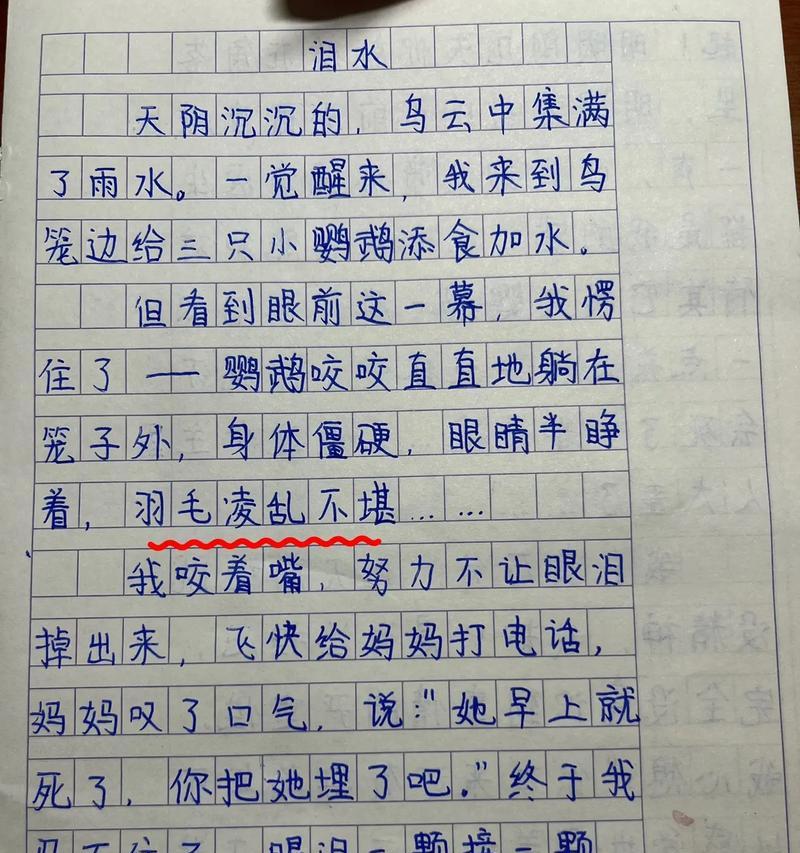 泪水
天阴沉沉的，乌云中集满
了雨水。一觉醒来，我来到鸟
笼边给三只小鹦鹉添食加水。
但看到眼前这一幕，我愣
住了——鹦鹉咬咬直直地躺在
笼子外，身体僵硬，眼睛半睁
着，羽毛凌乱不堪……
我咬着嘴，努力不让眼泪
掉出来，飞快给妈妈打电话，
妈妈叹了口气，说："她早上就
死了，你把她埋了吧。"终于我
眼泪一颗接一颗